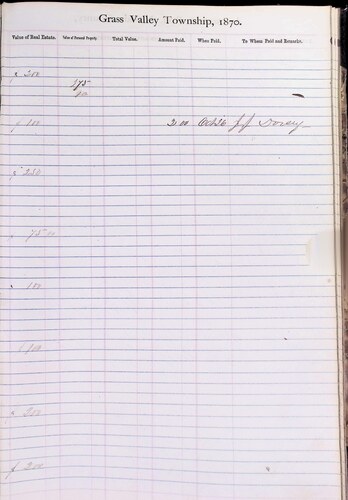 Grass Valley Township, 1870.
Value of Real Estate. Value of Personal Property. Total Value. Amount Paid. When Paid. To Whom Paid and Remarks.
200
175
100 2.00 Oct 26 J J Dorsey
250
75.00
100
100
200
200